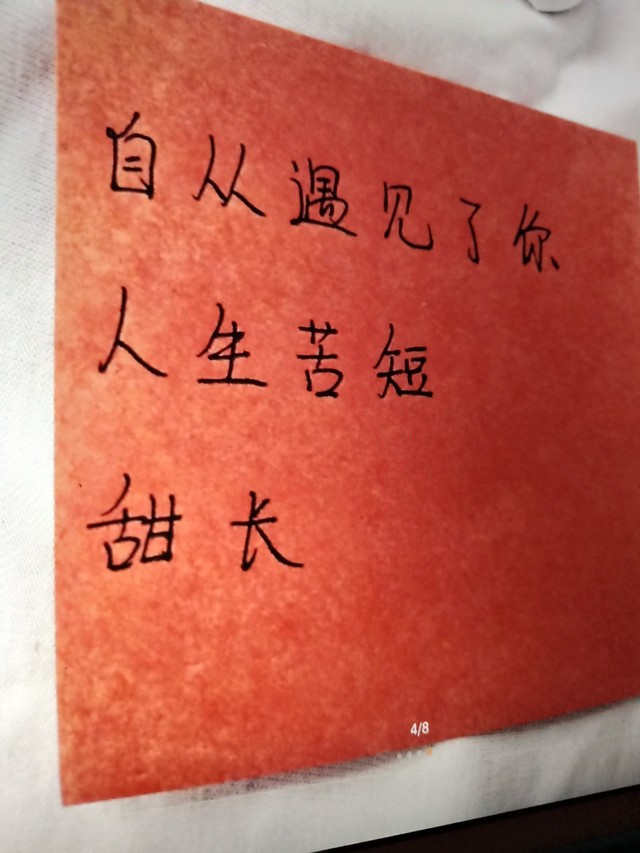 自从遇见了你
人生苦短
甜长
4/8